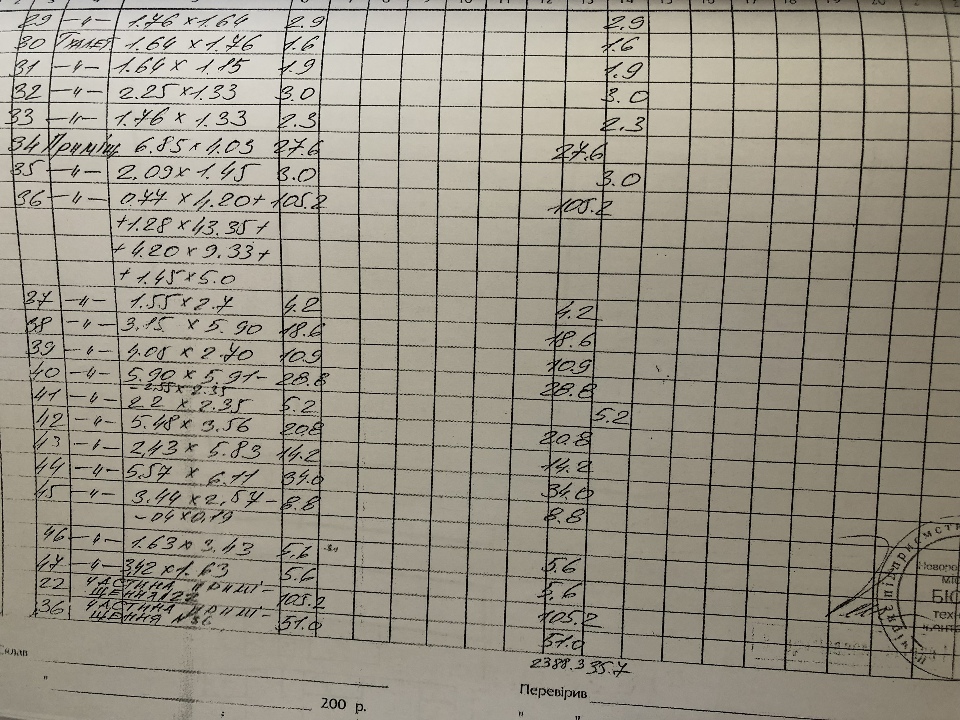 29 -"- 1.76 × 1.64 2.9 2.9
30 Туалет 1.64 × 1.76 1.6 1.6
31 -"- 1.64 × 1.15 1.9 1.9
32 -"- 2.25 × 1.33 3.0 3.0
33 -"- 1.76 × 1.33 2.3 2.3
34 Приміщ 6.85 × 4.03 27.6 27.6
35 -"- 2.09 × 1.45 3.0 3.0
36 -"- 0.77 × 4.20 + 105.2 105.2
+ 1.28 × 43.35 +
+ 4.20 × 9.33 +
+ 1.45 × 5.0
37 -"- 1.55 × 2.7 4.2 4.2
38 -"- 3.15 × 5.90 18.6 18.6
39 -"- 4.05 × 2.70 10.9 10.9
40 -"- 5.90 × 5.91 - 28.8 28.8
- 2.55 × 2.35
41 -"- 2.2 × 2.35 5.2 5.2
42 -"- 5.48 × 3.56 20.8 20.8
43 -"- 2.43 × 5.83 14.2 14.2
44 -"- 5.57 × 6.11 34.0 34.0
45 -"- 3.44 × 2.57 - 8.8 8.8
- 04 × 0.19
46 -"- 1.63 × 3.43 5.6 5.6
47 -"- 342 × 1.63 5.6 5.6
22 ЧАСТИНА ПРИМІ- 105.2 105.2
ЩЕННЯ 22
36 ЧАСТИНА ПРИМІ- 51.0 51.0
ЩЕННЯ №36
2388.3 35.7
Склав
200 р.
Перевірив
" "